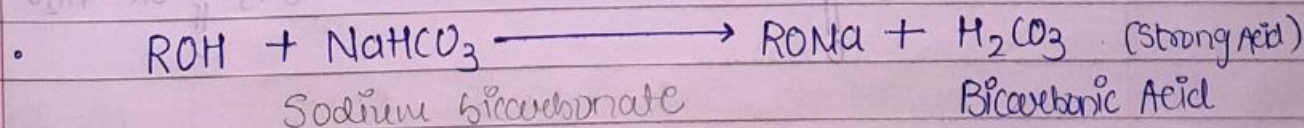 • ROH + NaHCO₃ ⟶ RONa + H₂CO₃ (Strong Acid)
Sodium bicarbonate Bicarbonic Acid